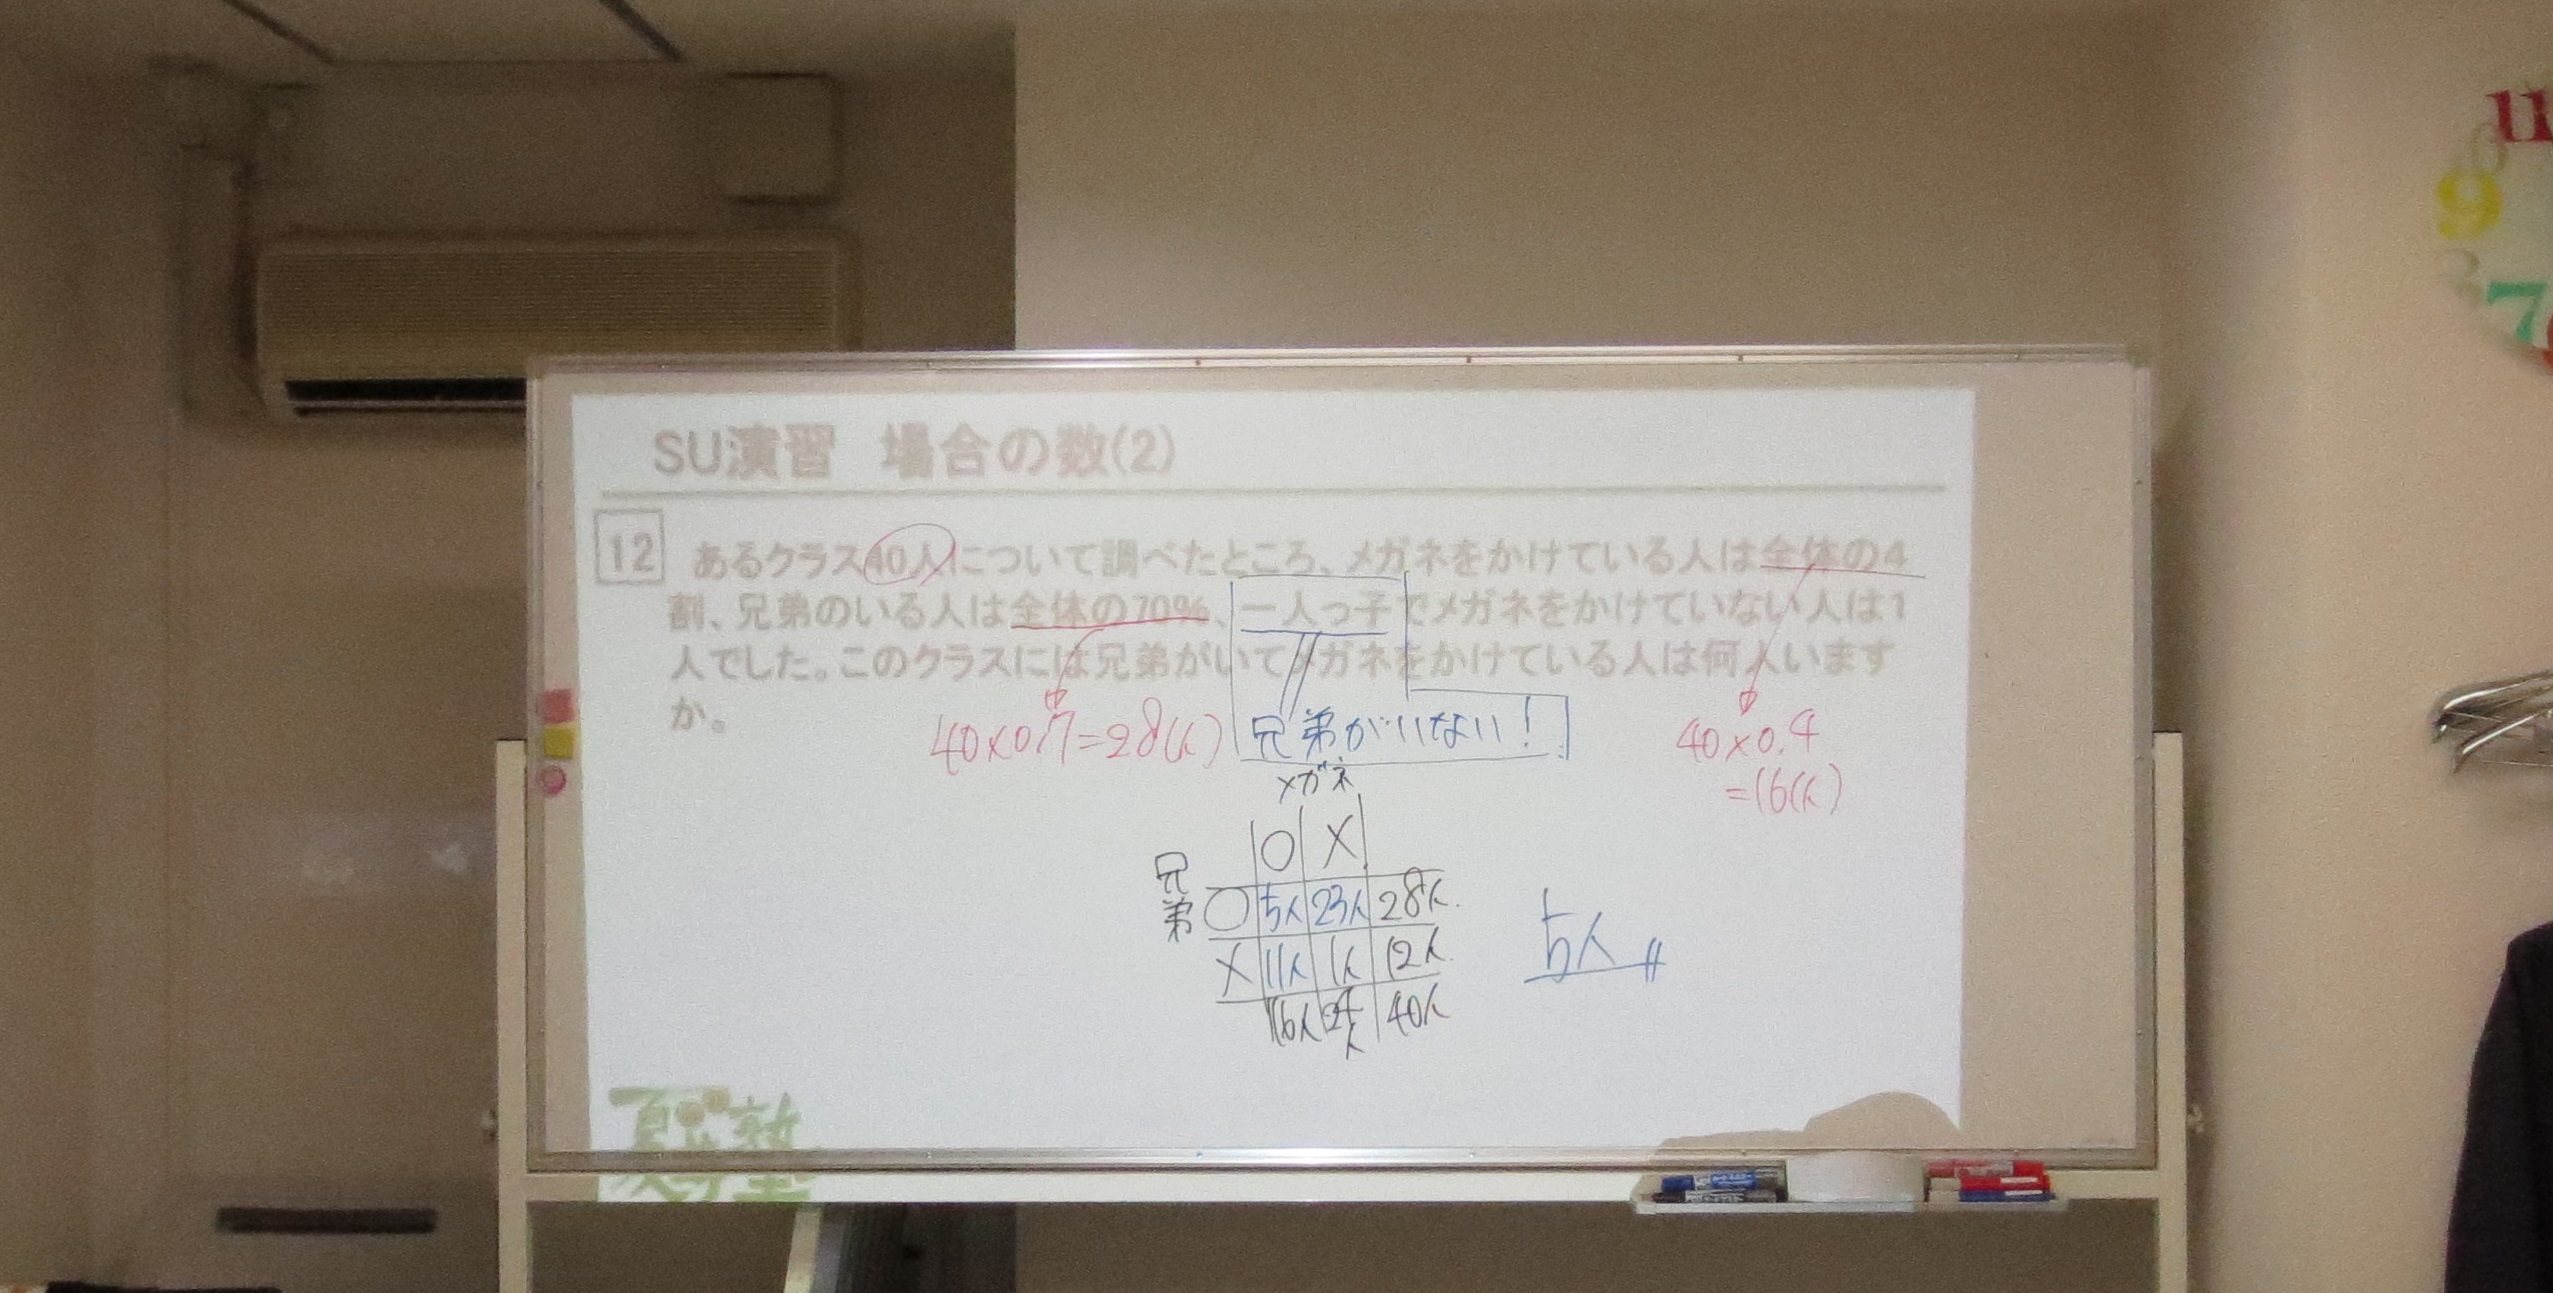 SU演習 場合の数(2)
12 あるクラス40人について調べたところ、メガネをかけている人は全体の4
割、兄弟のいる人は全体の70%、一人っ子でメガネをかけていない人は1
人でした。このクラスには兄弟がいてメガネをかけている人は何人います
か。
40×0.7=28(人)
兄弟がいない!
40×0.4
=16(人)
メガネ
○ ×
兄弟
○ 5人 23人 28人
× 11人 1人 12人
16人 24人 40人
5人
9
7